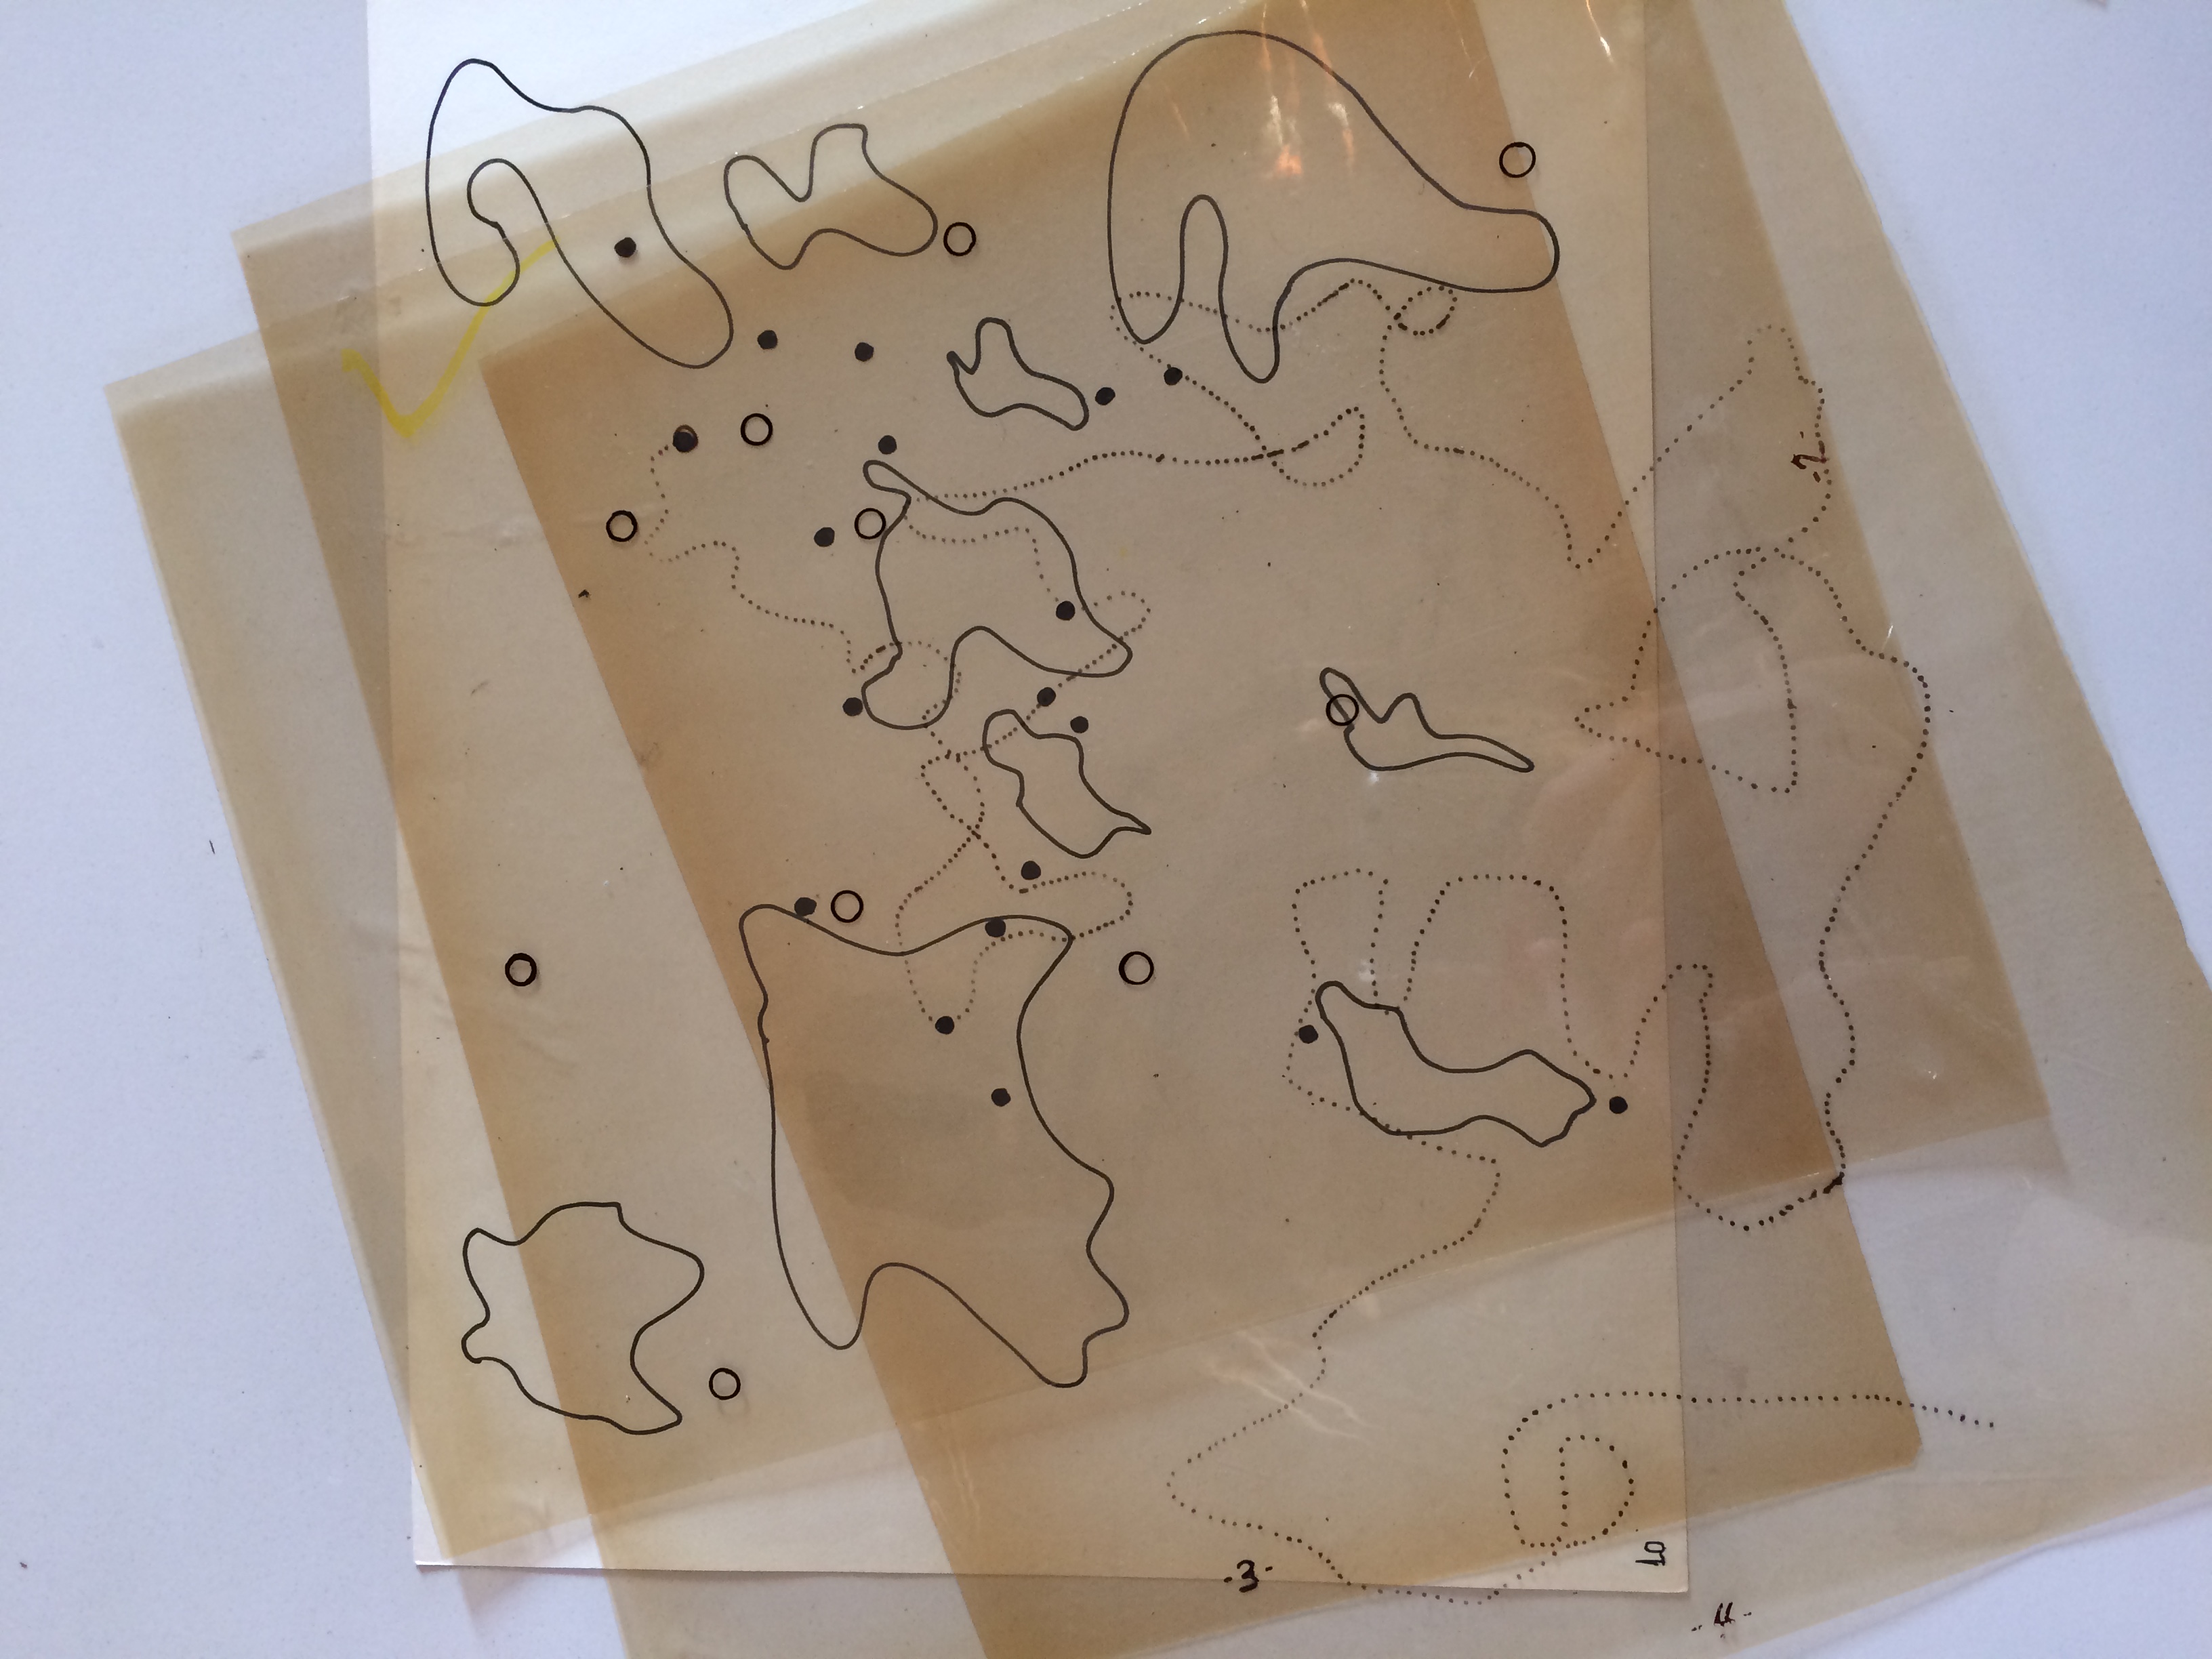 -3-
10
-4-
-2-